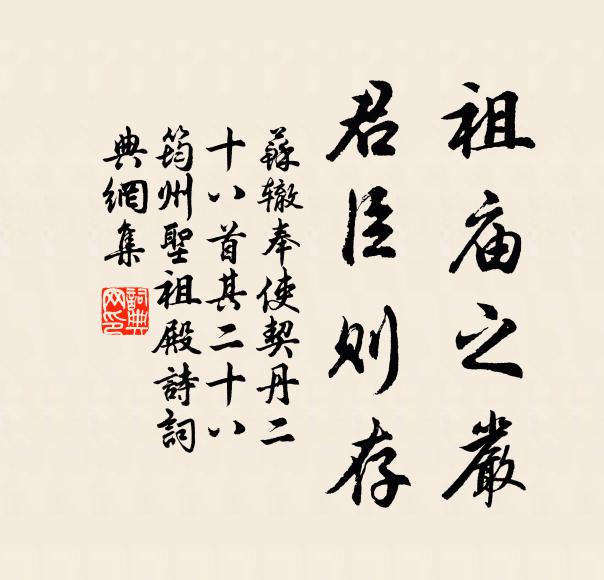 祖庙之嚴
君臣则存
蘇辙奉使契丹二
十八首其二十八
筠州聖祖殿詩詞
典網集
詞典網印